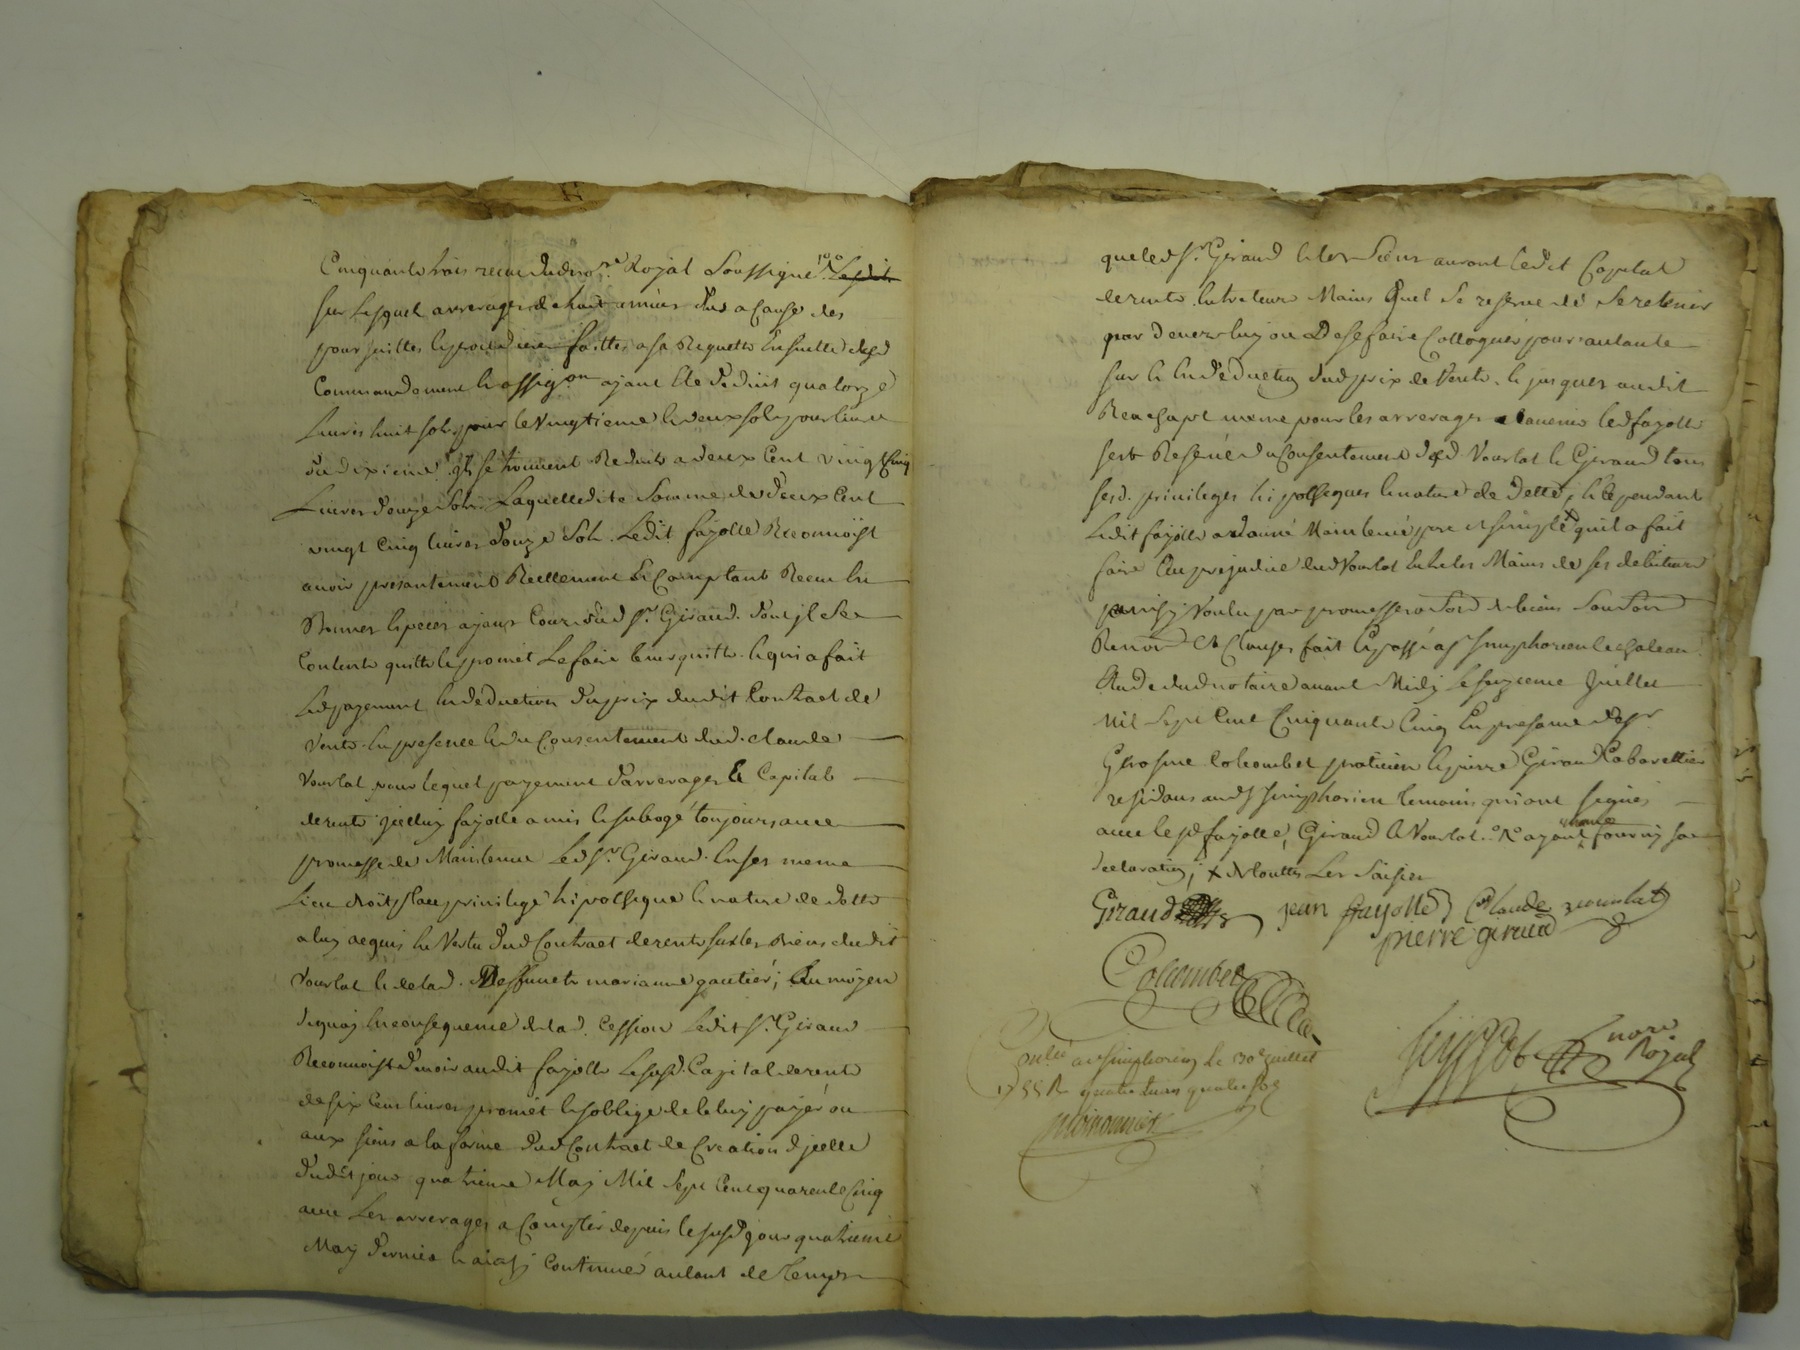 Cinquante trois receu dudnore Royal soussigné Ledit
sur lesquels arrerages de huit années dus a cause des
poursuittes et procedures faittes a sa Requette ensuitte desd
Commandement et assigon ayant été déduit quatorze
Livres huit sols pour le vingtieme et deux sols pour livre
du dixieme ils se trouvent Reduits a deux Cent vingt Cinq
Livres douze sols Laquelledite somme de deux Cent
vingt Cinq livres douze sols. Ledit fayolle Reconnoist
avoir presantement Reellement et Comptant Receu en
Bonnes especes ayant Cours dud sr. Giraud. dont jl se
Contente quitte et promet Le faire tenir quitte. et qui a fait
Led payement en deduction du prix dudit Contract de
Vente. en presence et du Consentement dud. claude
Vourlat pour lequel payement d'arrerages & Capital
de rente jcelluy fayolle a mis et subrogé toujours avec
promesse de Maintenue Led sr. Giraud. en ses meme
Lieu droits place privilege hipotheque et nature de dette
a luy acquis en Vertu dud Contract de rente sur les Biens dudit
Vourlat et de lad. deffuncte marianne gautier; Au moyen
de quoy en consequence de lad. Cession Ledit sr. Giraud
Reconnoist devoir audit fayolle Lesusd. Capital de rente
de six Cens livres promet et s'oblige de le luy payer ou
aux siens a la forme dud Contract de Creation d'jcelle
dudit jour quatrieme May Mil sept Cent quarente Cinq
avec Les arrerages a Compter depuis le susd jour quatrieme
May dernier et ainsy Continuer autant de temps
que led sr. Giraud et les siens auront ledit Capital
de rente entre leurs Mains quel se reserve de se retenir
par devers luy ou de se faire Colloquer pour autant
sur et en deduction dud prix de vente. et jusques audit
Reachapt meme pour les arrerages a l'avenir led fayolle
sest Reservé du Consentement desd Vourlat et Giraud tous
sesd. privileges hipotheques et nature de dette, et cependant
Ledit fayolle a donné Mainlevée pure et simple + qu'il a fait
faire au prejudice dud Vourlat entre les Mains de ses debiteurs
painsy Voulu par promesses
Renon et Clauses fait et passé a st simphorien le chateau
Etude dudnotaire avant Midy le seizieme Juillet
Mil sept Cent Cinquante Cinq En presance de sr
Colcombet praticien et pierre Giraud Cabarettier
residans aud st simphorien temoins qui ont signés
avec le sr fayolle, Giraud et Vourlat.
declaration; + de touttes Les Saisies
Giraud jean fayolle Claude vourlat
pierre giraud
Colcombet
nore
Royal
Conlé a st simphorien le 30e juillet
1755 R quatre livres quatre sols